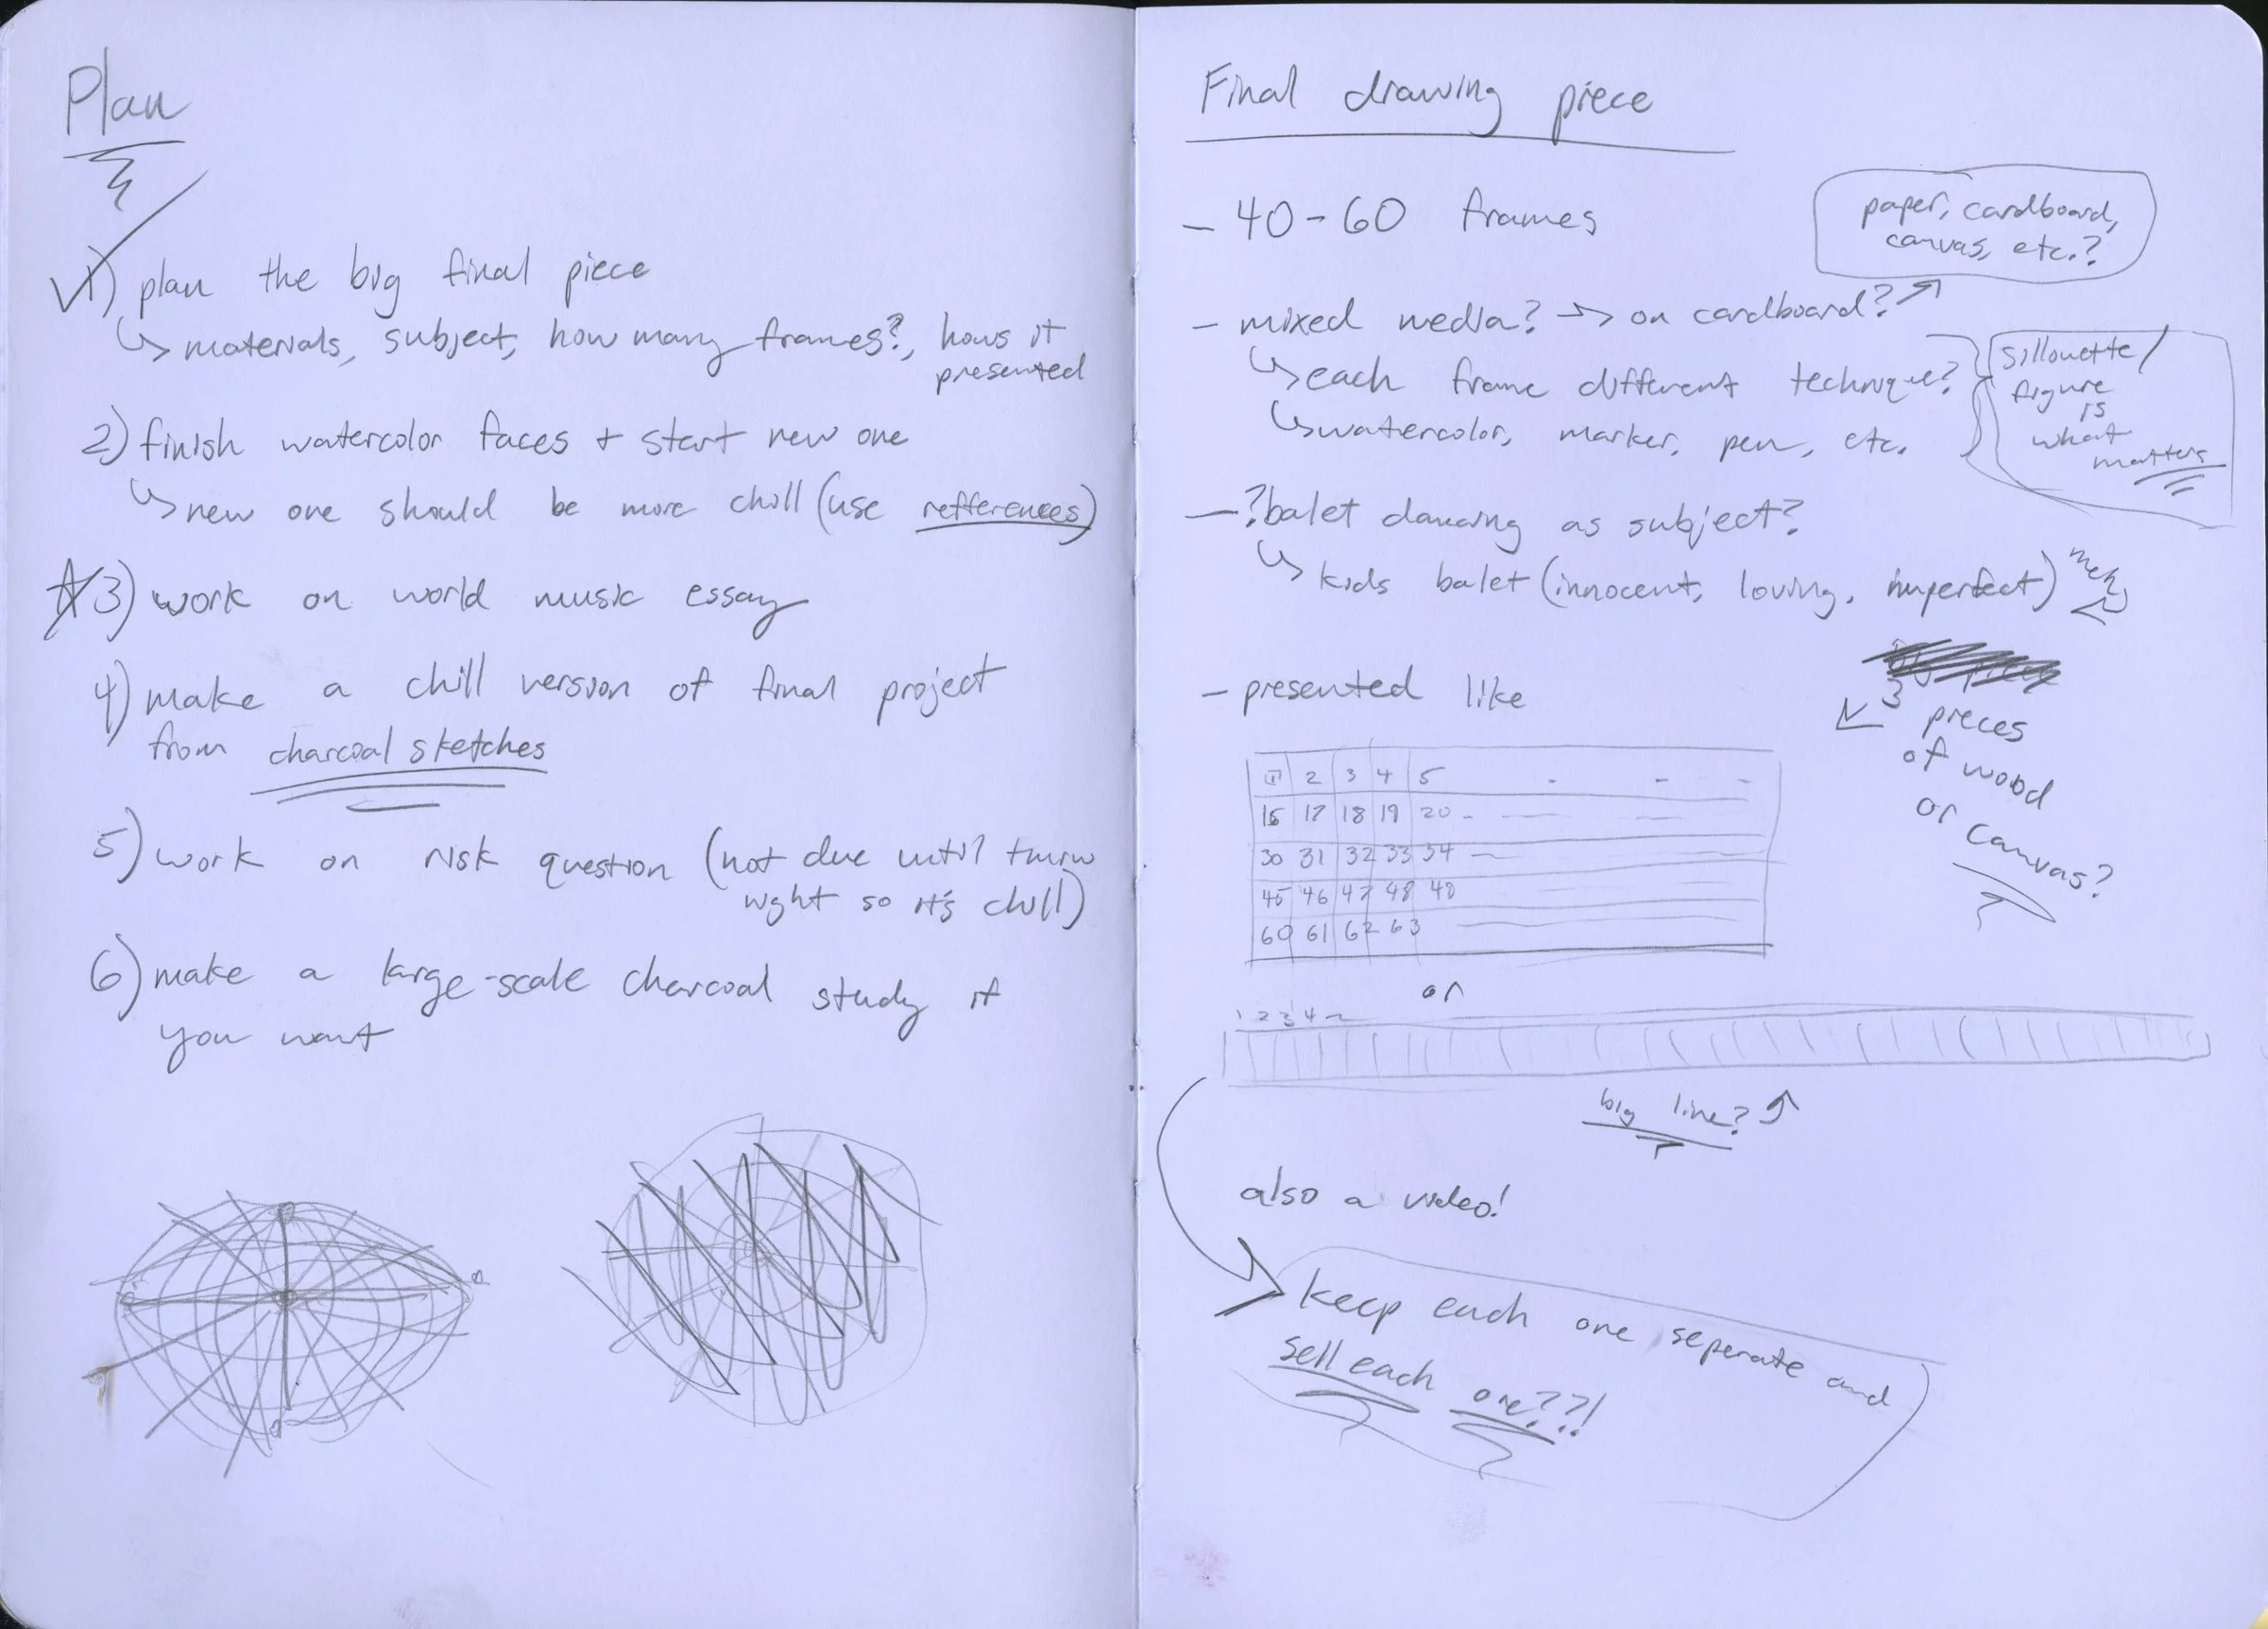 Plan
1) plan the big final piece
materials, subject, how many frames?, hows it
presented
2) finish watercolor faces + start new one
new one should be more chill (use refferences)
3) work on world music essay
4) make a chill version of final project
from charcoal sketches
5) work on risk question (not due until tmrw
night so it's chill)
6) make a large-scale charcoal study if
you want
Final drawing piece
- 40-60 frames
paper, cardboard,
canvas, etc.?
- mixed media? → on cardboard?
each frame different technique?
watercolor, marker, pen, etc.
sillouette/
figure
is
what
matters
- ?balet dancing as subject?
kids balet (innocent, loving, imperfect)
meh
- presented like
3 pieces
of wood
or canvas?
1 2 3 4 5 - - -
16 17 18 19 20 -
30 31 32 33 34 -
45 46 47 48 49
60 61 62 63
or
1 2 3 4 ~
big line?
also a video!
keep each one seperate and
sell each one??!